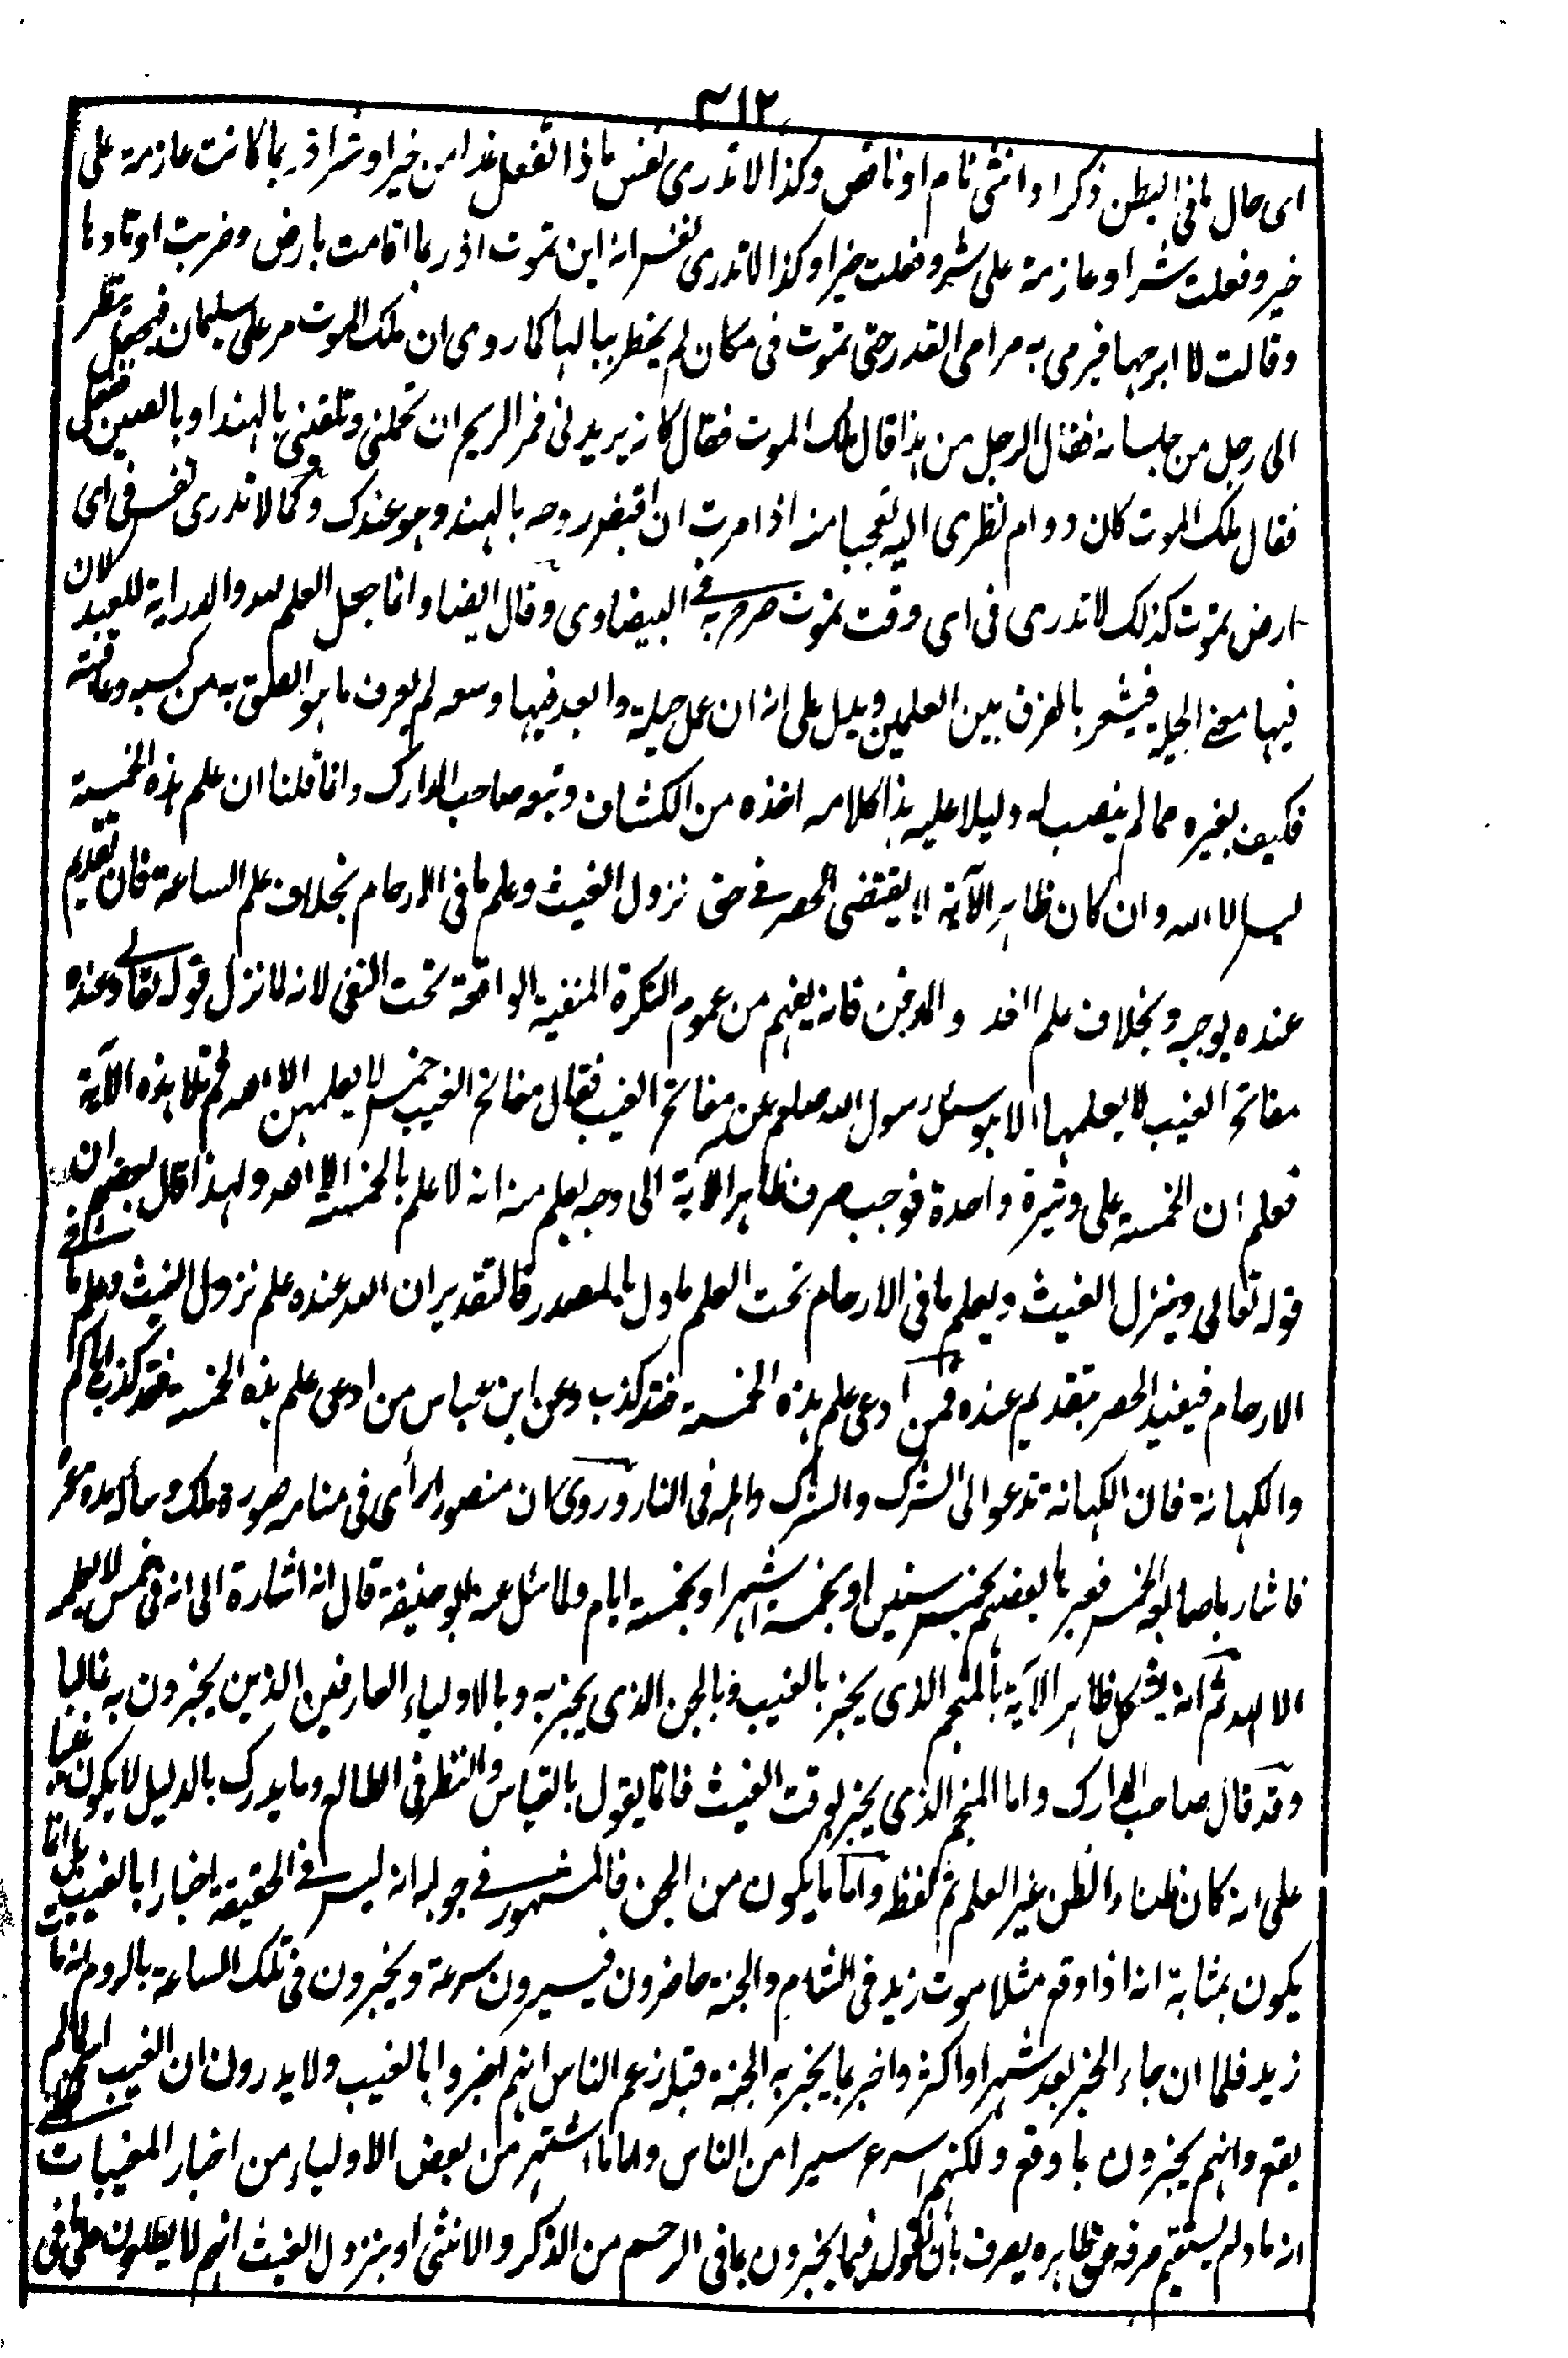 ٣١٢
اى حال ما فى البطن ذكر او انثى تام او ناقص وكذا لا تدرى نفس ماذا تفعل غدا من خير او شر اذ ربما كانت عازمة على
خير وفعلت شرا وعازمة على شر وفعلت خيرا وكذا لا تدرى نفس انه اين تموت اذ ربما اقامت بارض وضربت اوتادها
وقالت لا ابرحها فيرمى به مرامى القدر حتى تموت فى مكان لم يخطر ببالها كما روى ان ملك الموت مر على سليمان فجعل ينظر
الى رجل من جلسائه فقال الرجل من هذا قال ملك الموت فقال كانه يريدنى فمر الريح ان تحملنى وتلقنى بالهند او بالصين ففعل
فقال ملك الموت كان دوام نظرى اليه تعجبا منه اذ امرت ان اقبض روحه بالهند وهو عندك وكما لا تدرى نفس فى اى
ارض تموت كذلك لا تدرى فى اى وقت تموت صرح به فى البيضاوى وقال ايضا وانما جعل العلم لله والدراية للعبد لان
فيها معنى الحيلة فيشعر بالفرق بين العلمين ويدل على انه ان عمل حيلة وابعد فيها وسعه لم يعرف ما هو الصق به من كسبه وعاقبته
فكيف بغيره مما لم ينصب له دليلا عليه هذا كلامه اخذه من الكشاف وتبعه صاحب المدارك وانما قلنا ان علم هذه الخمسة
ليس الا الله وان كان ظاهر الآية لا يقتضى الحصر فى حق نزول الغيث وعلم ما فى الارحام بخلاف علم الساعة فان تقديم
عنده يوجبه وبخلاف علم الغد والمدفن فانه يفهم من عموم النكرة المنفية الواقعة تحت النفى لانه لما نزل قوله تعالى وعنده
مفاتح الغيب لا يعلمها الا هو سئل رسول الله صلعم عن مفاتح الغيب فقال مفاتح الغيب خمس لا يعلمهن الا الله ثم تلا هذه الآية
فعلم ان الخمسة على وتيرة واحدة فوجب صرف ظاهر الآية الى وجه يعلم منه انه لا علم بالخمسة الا الله ولهذا قال بعضهم ان
قوله تعالى وينزل الغيث ويعلم ما فى الارحام تحت العلم ماول بالمصدر فالتقدير ان الله عنده علم نزول الغيث وعلم ما فى
الارحام فيفيد الحصر بتقديم عنده فمن ادعى علم هذه الخمسة فقد كذب وعن ابن عباس من ادعى علم هذه الخمسة فقد كذب اياكم
والكهانة فان الكهانة تدعو الى الشرك والشرك واهله فى النار وروى ان منصورا رأى فى منامه صورة ملك وساله مدة عمره
فاشار باصابعه الخمس فعبرها بعضهم بخمس سنين او بخمسة اشهر او بخمسة ايام ولما سئل عنه ابو حنيفة قال انه اشارة الى انه فى خمس لا يعلمه
الا الله ثم انه يشكل ظاهر الآية بالمنجم الذى يخبر بالغيب وبالجن الذى يخبر به وبالاولياء العارفين الذين يخبرون به غالبا
وقد قال صاحب المدارك واما المنجم الذى يخبر بوقت الغيث فانما يقول بالقياس والنظر فى الطالع وما يدرك بالدليل لا يكون غيبا
على انه كان ظنا والظن غير العلم تم لفظه واما ما يكون من الجن فالمشهور فى جوابه انه ليس فى الحقيقة اخبارا بالغيب بل انما
يكون بمثابة انه اذا وقع مثلا موت زيد فى الشام والجنة حاضرون فيسيرون سرعة ويخبرون فى تلك الساعة بالروم انه مات
زيد فلما ان جاء الخبر بعد شهر او اكثر واخبر بما يخبر به الجنة قبله زعم الناس انهم اخبروا بالغيب ولا يدرون ان الغيب لم
يقع وانهم يخبرون بما وقع ولكنهم اسرع سيرا من الناس واما ما اشتهر من بعض الاولياء من اخبار المغيبات
يستقم صرفه عن ظاهره يعرف بأن نقول فيما يخبرون بما فى الرحم من الذكر والانثى او بنزول الغيث انهم لا يطلعون على ما فى